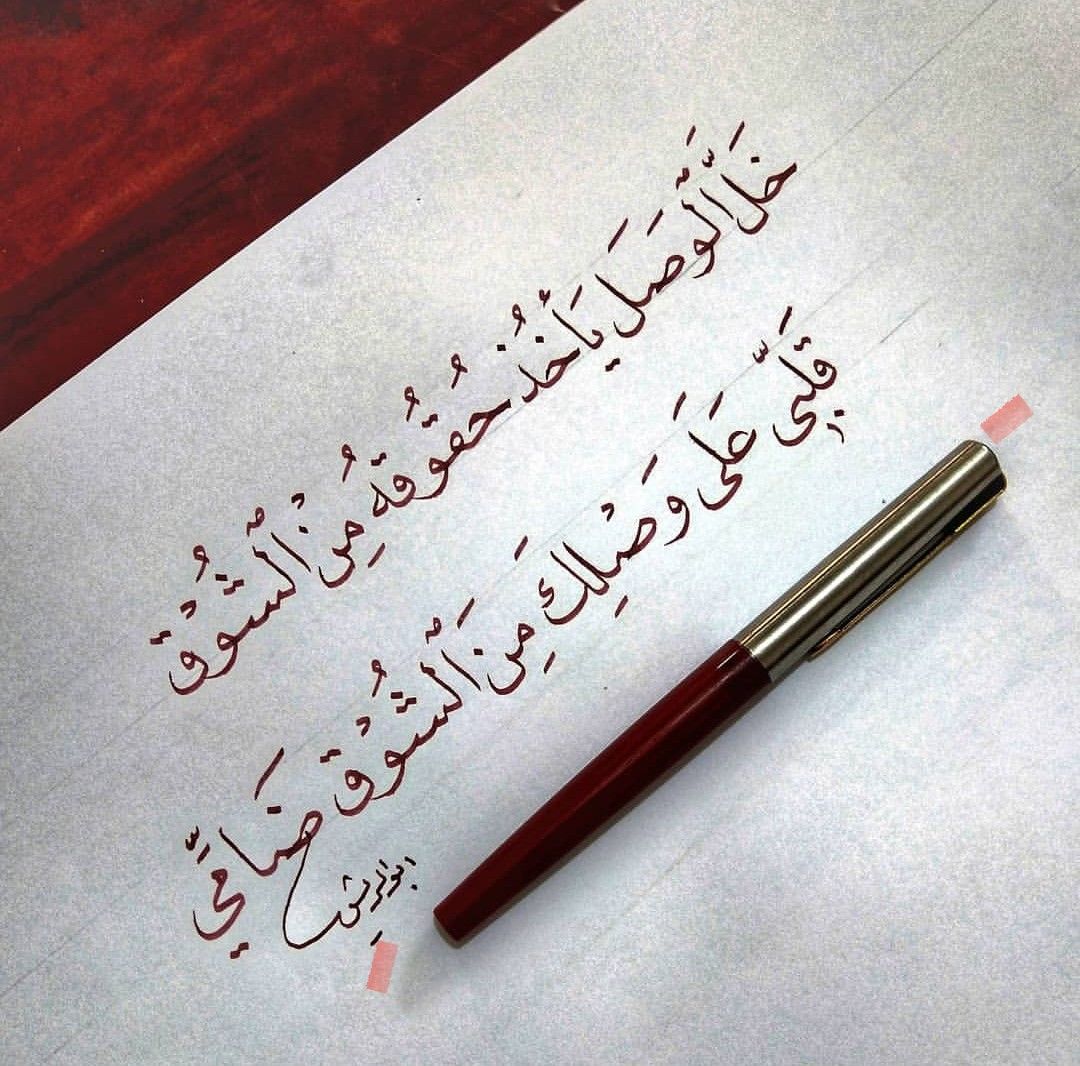 خَلَّ الْوَصَل يَأْخُذْ حُقُوقَهُ مِنْ الشُّوْق
قَلْبِي عَلَى وَصْلِك مِنَ الشُّوْق ضَامِي
ابو الريش